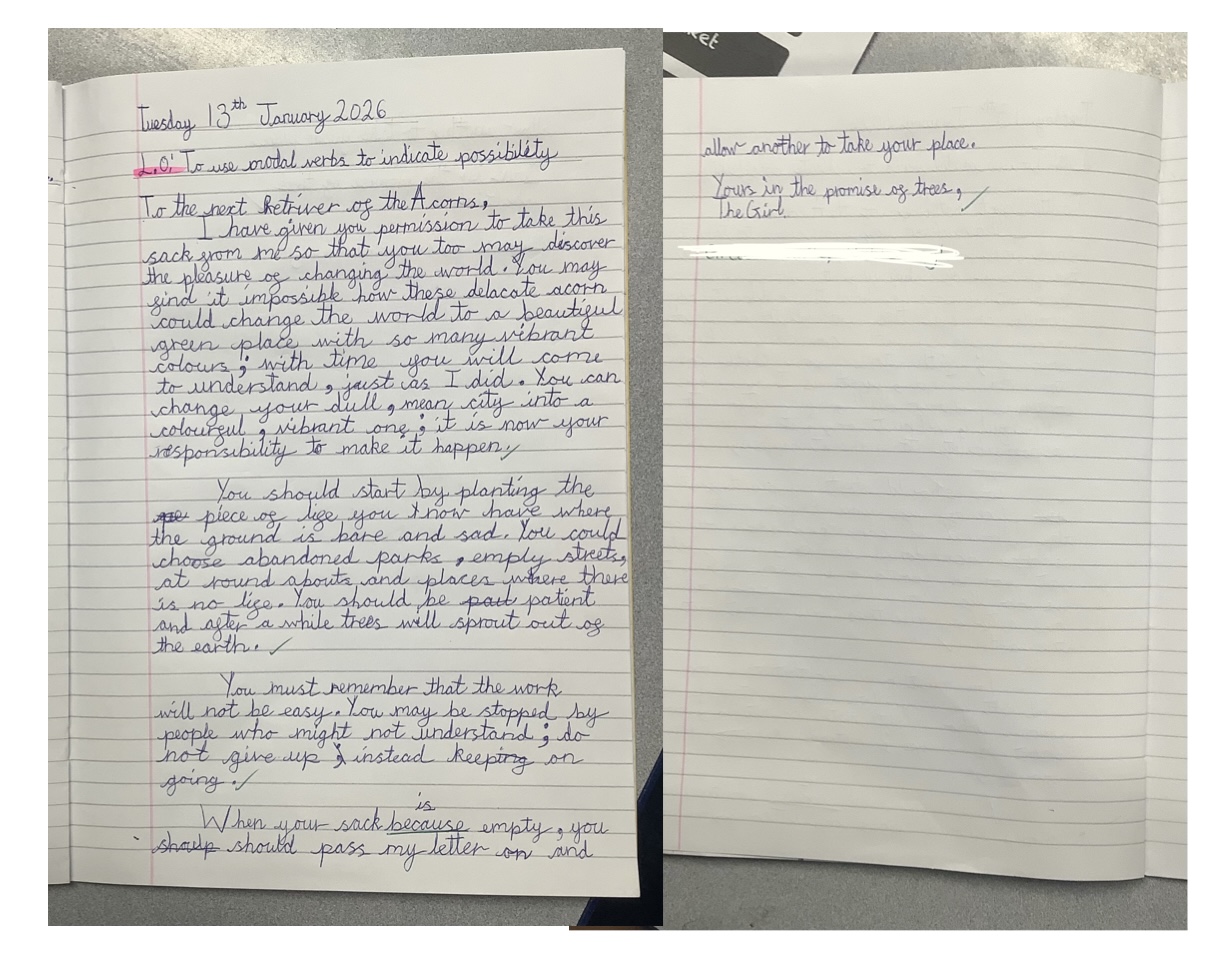 Tuesday 13th January 2026
L.O: To use modal verbs to indicate possibility
To the next Retriver of the Acorns,
I have given you permission to take this
sack from me so that you too may discover
the pleasure of changing the world. You may
find it impossible how these delacate acorn
could change the world to a beautiful
green place with so many vibrant
colours ; with time you will come
to understand , just as I did. You can
change your dull , mean city into a
colourful , vibrant one ; it is now your
responsibility to make it happen.
You should start by planting the
piece of life you know have where
the ground is bare and sad. You could
choose abandoned parks , empty streets,
at round abouts, and places where there
is no life. You should be patient
and after a while trees will sprout out of
the earth.
You must remember that the work
will not be easy. You may be stopped by
people who might not understand ; do
not give up ; instead keeping on
going.
is
When your sack because empty , you
should pass my letter on and
allow another to take your place.
Yours in the promise of trees,
The Girl.
ket